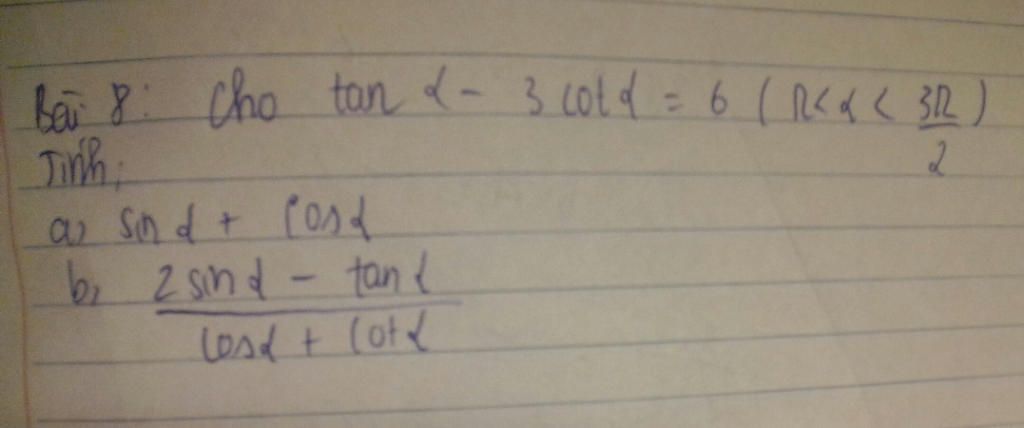 Bài 8: Cho tan α - 3 cot α = 6 ( π < α < 3π/2 )
Tính:
a, sin α + cos α
b, 2 sin α - tan α
cos α + cot α